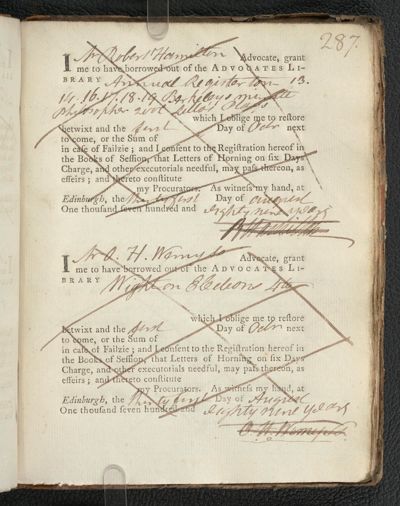 287.
I Mr Robert Hamilton Advocate, grant
me to have borrowed out of the ADVOCATES LI-
BRARY Annual Register tom 13.
14. 16. 17. 18. 19
Philosopher
which I oblige me to restore
betwixt and the first Day of Octr next
to come, or the Sum of
in case of Failzie; and I consent to the Registration hereof in
the Books of Session, that Letters of Horning on six Days
Charge, and other executorials needful, may pass thereon, as
effeirs; and thereto constitute
my Procurators. As witness my hand, at
Edinburgh, the thirty first Day of August
One thousand seven hundred and eighty nine years
I Mr O. H. Wemyss Advocate, grant
me to have borrowed out of the ADVOCATES LI-
BRARY Wight on Elections
which I oblige me to restore
betwixt and the first Day of Octr next
to come, or the Sum of
in case of Failzie; and I consent to the Registration hereof in
the Books of Session, that Letters of Horning on six Days
Charge, and other executorials needful, may pass thereon, as
effeirs; and thereto constitute
my Procurators. As witness my hand, at
Edinburgh, the Thirty first Day of August
One thousand seven hundred and eighty nine years